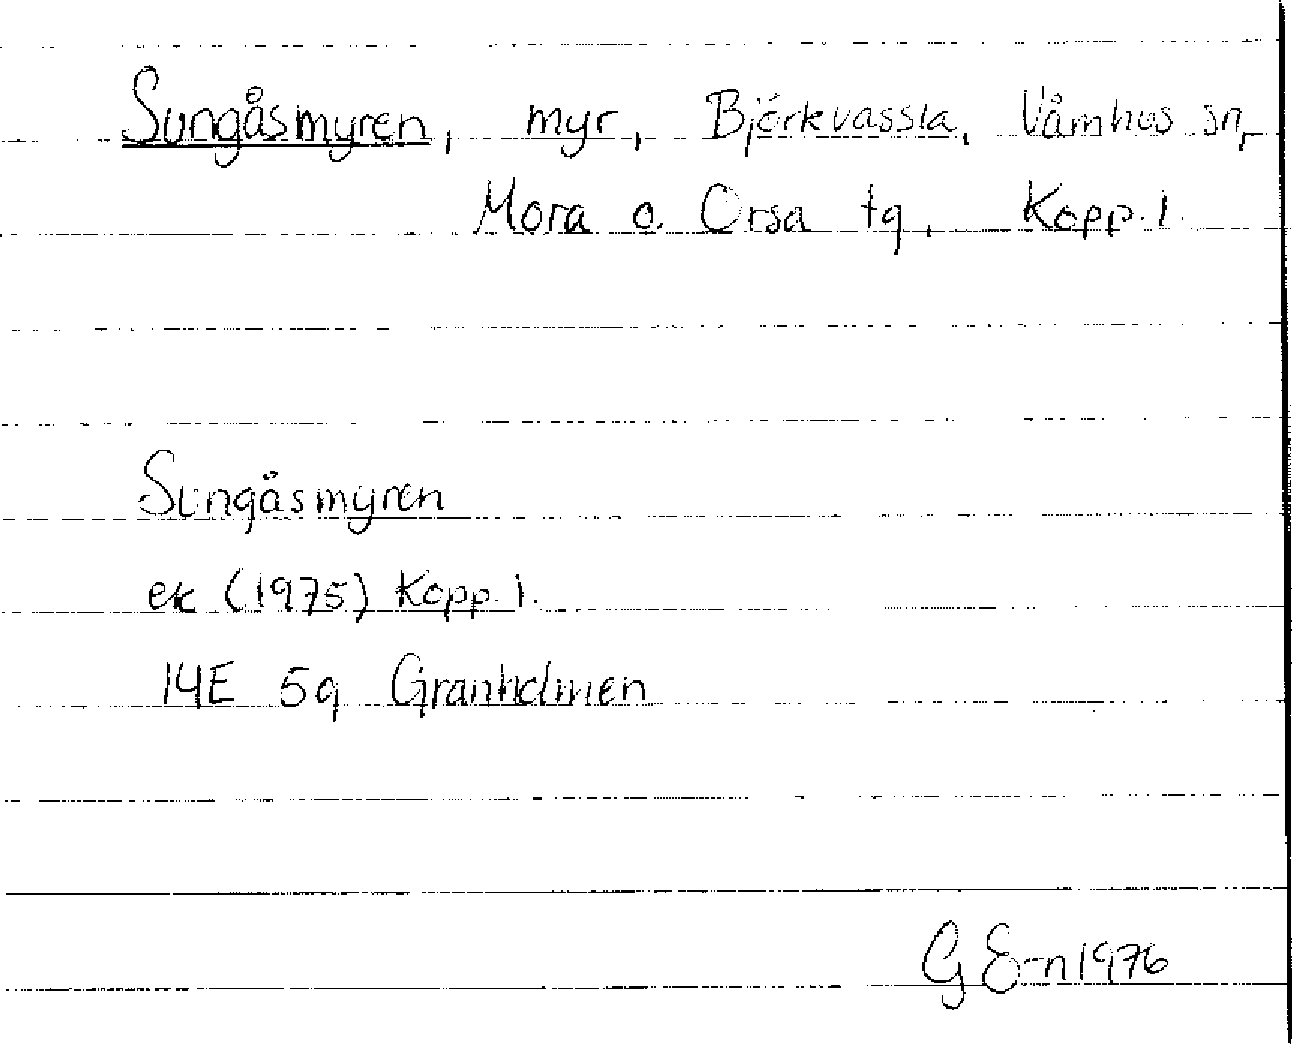 Sungåsmyren, myr, Björkvassla, Våmhus sn,
Mora o. Orsa tg, Kopp. l.
Sungåsmyren
ek (1975) Kopp. l.
14E 5g Granholmen
G E-n 1976